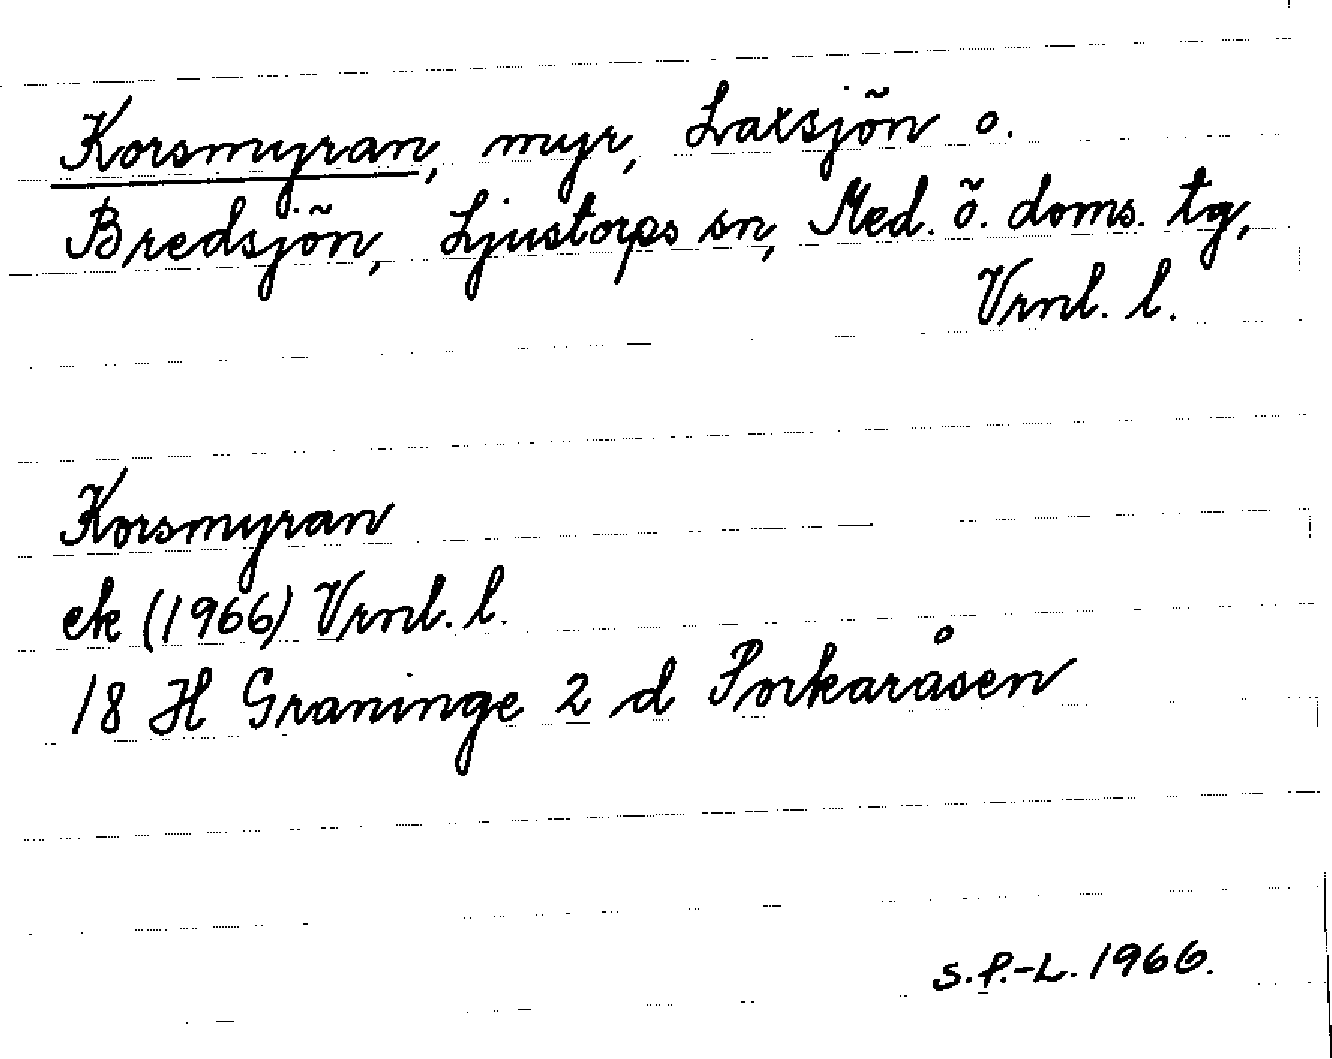 Korsmyran, myr, Laxsjön o.
Bredsjön, Ljustorps sn, Med. ö. doms. tg,
Vrnl. l.
Korsmyran
ek (1966) Vrnl. l.
18 H Graninge 2 d Porkaråsen
S.P.-L. 1966.